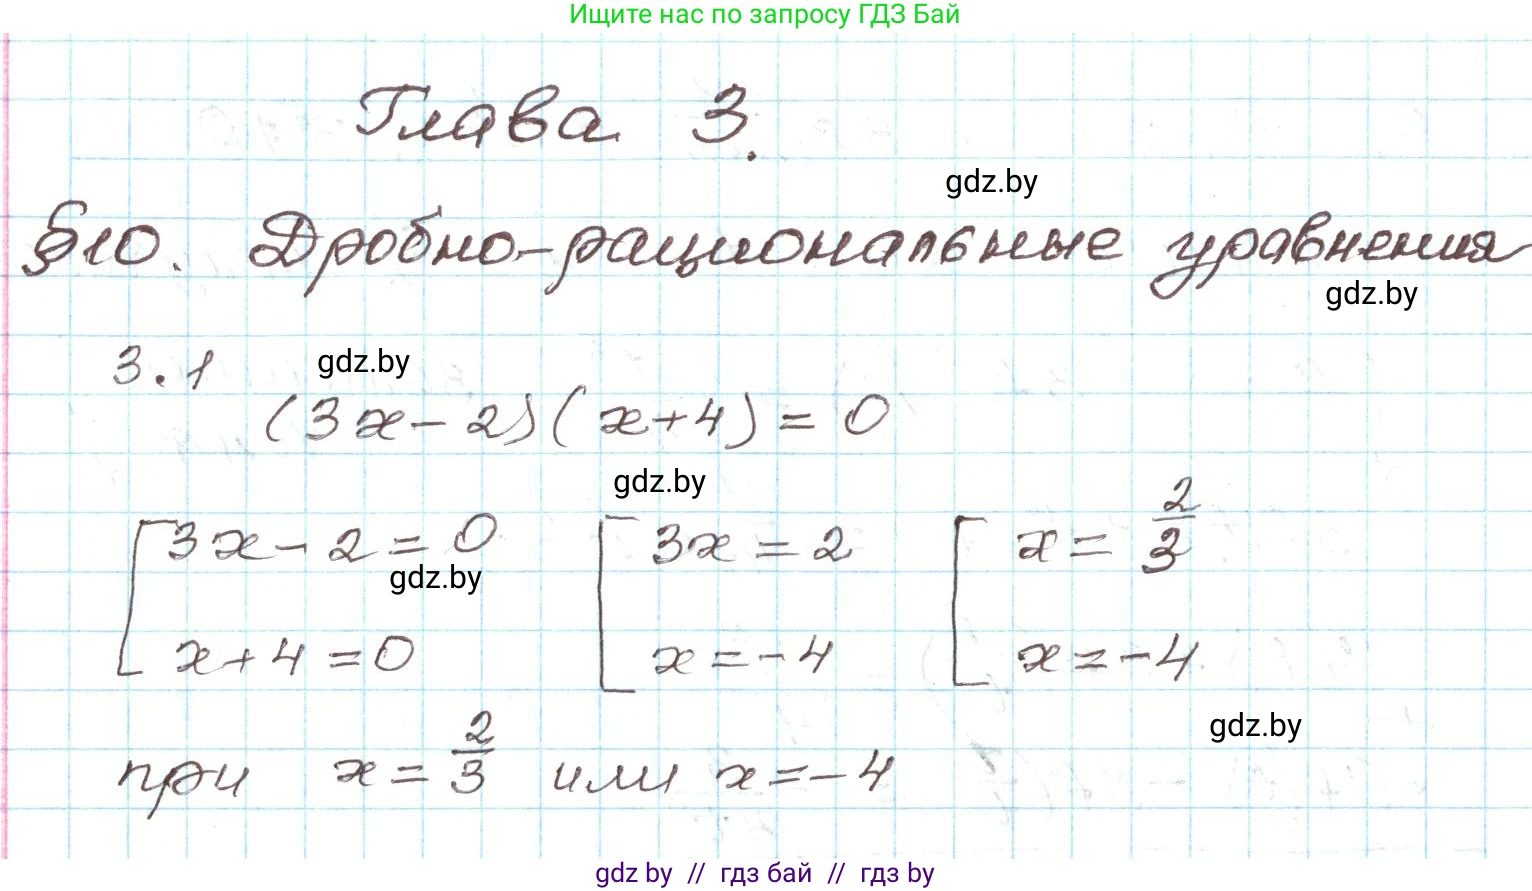 Ищите нас по запросу ГДЗ Бай
Глава 3.
gdz.by
§10. Дробно-рациональные уравнения
gdz.by
3.1 gdz.by
(3x-2)(x+4)=0
gdz.by
[3x-2=0 [3x=2 [x=2/3
gdz.by
x+4=0 x=-4 x=-4
gdz.by
при x=2/3 или x=-4
gdz by // гдз бай // гдз by